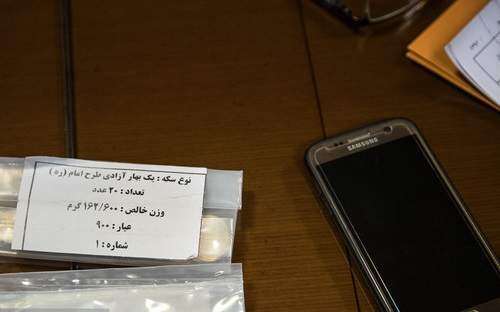 نوع سکه : یک بهار آزادی طرح امام (ره)
تعداد : ۲۰ عدد
وزن خالص : ۱۶۲/۶۰۰ گرم
عیار : ۹۰۰
شماره : ۱
SAMSUNG